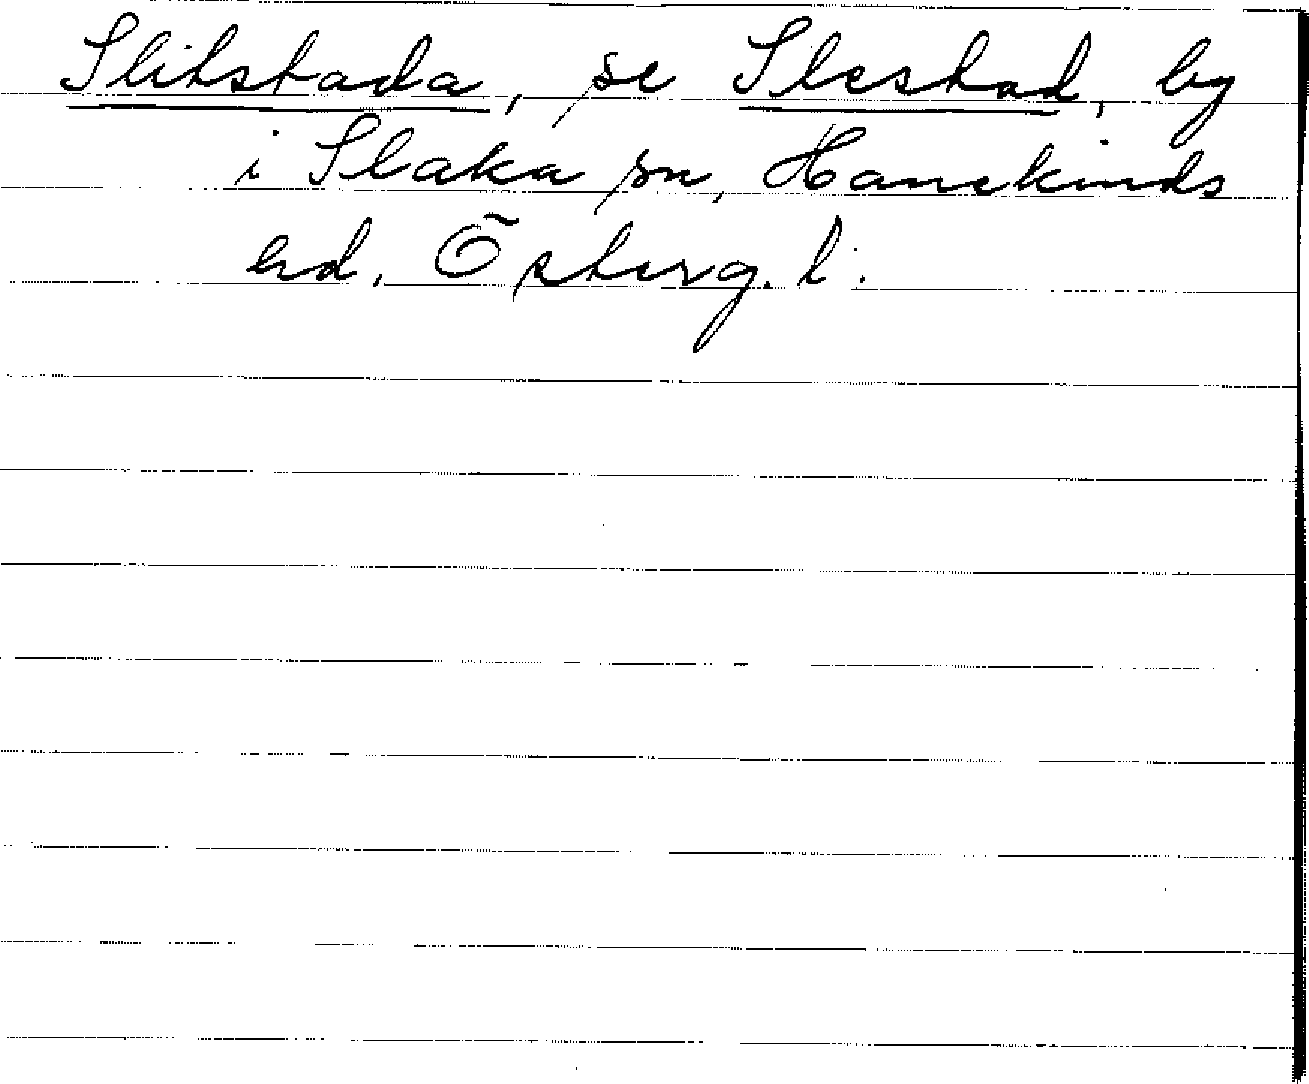 Slitstada, se Slestad, by
i Slaka sn, Hanekinds
hd, Österg. l.